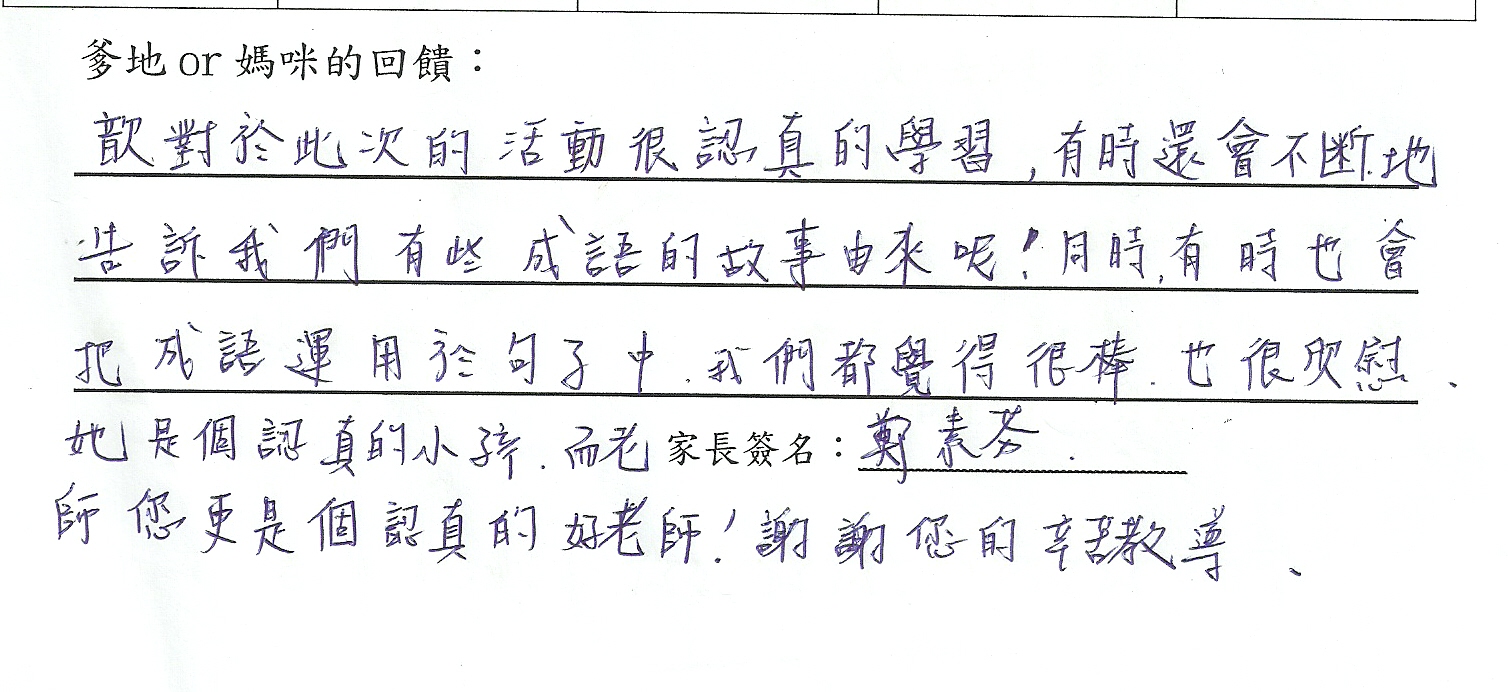 爹地 or 媽咪的回饋：
歆對於此次的活動很認真的學習，有時還會不斷地
告訴我們有些成語的故事由來呢！同時，有時也會
把成語運用於句子中．我們都覺得很棒．也很欣慰、
她是個認真的小孩．而老 家長簽名：鄭素芬．
師您更是個認真的好老師！謝謝您的辛苦教導、